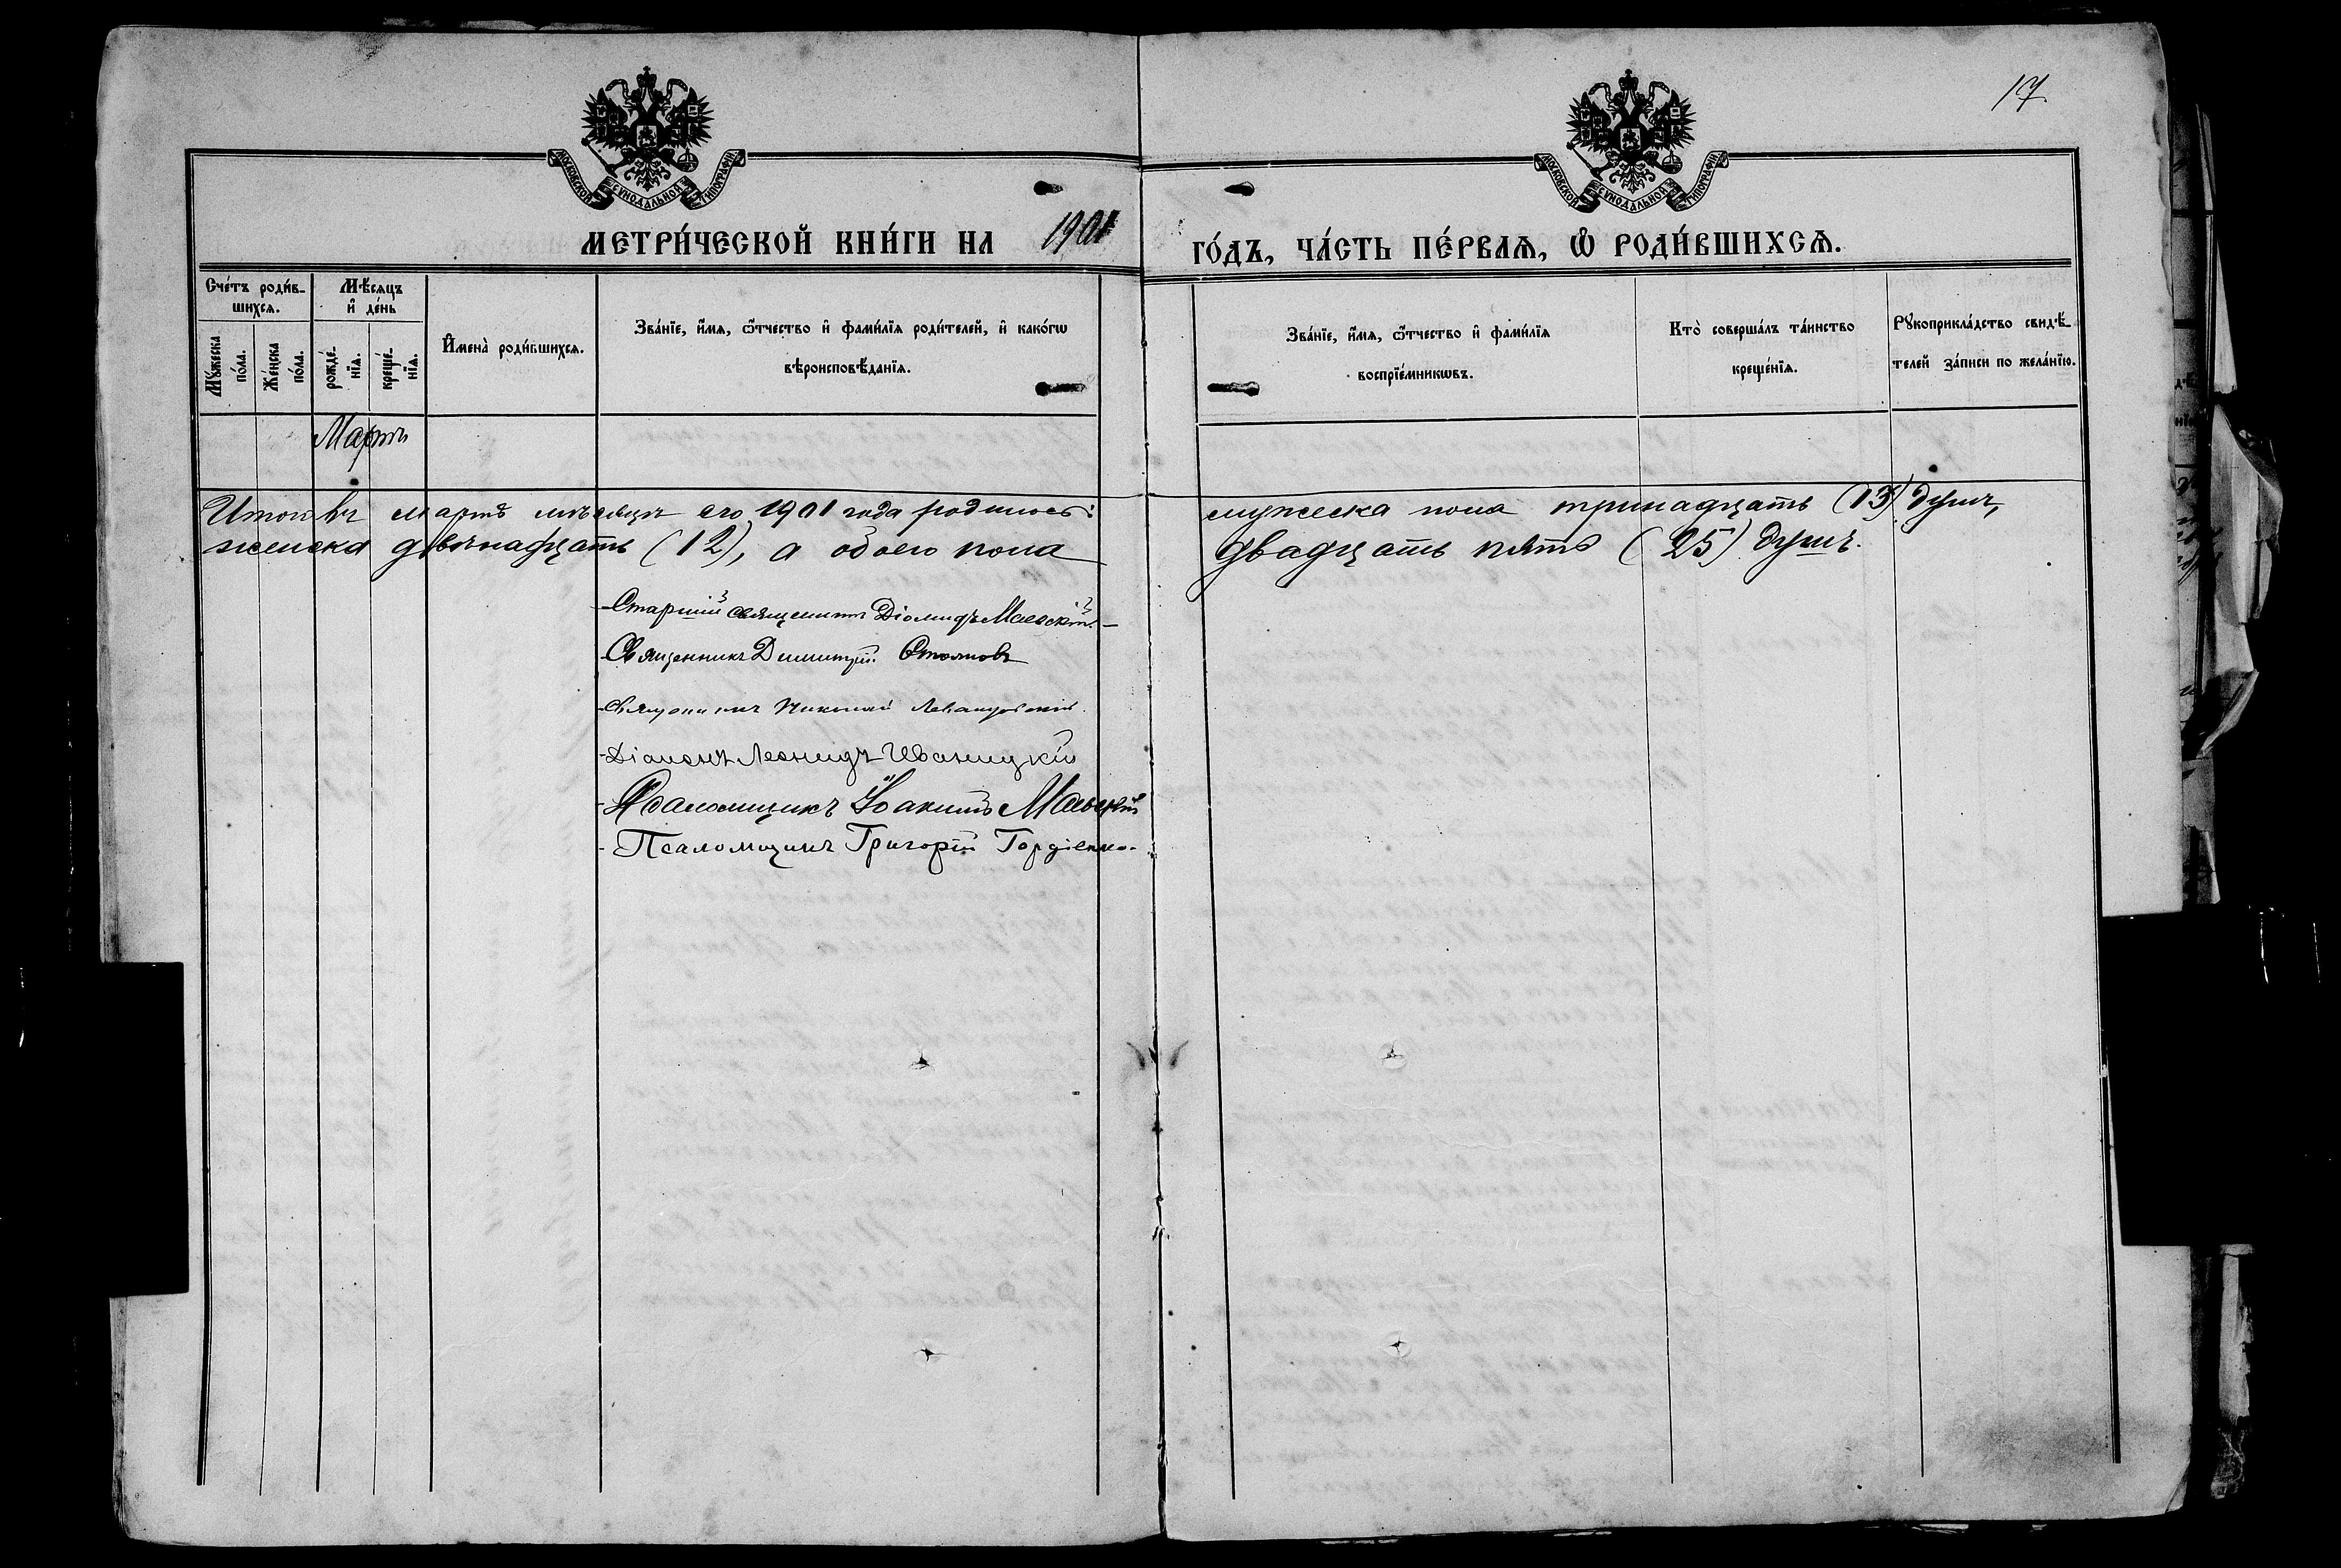 17
МОСКОВСКОЙ СУНОДАЛЬНОЙ ТИПОГРАФІИ
МОСКОВСКОЙ СУНОДАЛЬНОЙ ТИПОГРАФІИ
МЕТРИ́ЧЕСКОЙ КНИ́ГИ НА 1901 ГО́ДЪ, ЧА́СТЬ ПЕ́РВАѦ, Ѿ РОДИ́ВШИХСѦ.
Сче́тъ роди́в-
шихсѧ.
Мꙋ́жеска
по́ла.
Же́нска
по́ла.
Мѣ́сяцъ
и҆ де́нь
рожде́-
нїѧ.
креще́-
нїѧ.
И҆мена̀ роди́вшихсѧ.
Зва́нїе, и҆́мѧ, ѻ҆́тчество и҆ фами́лїѧ роди́телей, и҆ како́гѡ
вѣроисповѣ́данїѧ.
Зва́нїе, и҆́мѧ, ѻ҆́тчество и҆ фами́лїѧ
воспрїе́мникѡвъ.
Кто̀ соверша́лъ та́инство
креще́нїѧ.
Рꙋкоприкла́дство свидѣ́-
телей за́писи по жела́нїю.
Мартъ
Итого въ мартѣ мѣсяцѣ сего 1901 года родилось: мужеска пола тринадцать (13) душъ,
женска двѣнадцать (12), а обоего пола двадцать пять (25) душъ.
-Старшій священникъ Діомидъ Маевскій.-
-Священникъ Димитрій Стояновъ
-Священникъ Николай
-Діаконъ Леонидъ Иваницкій
-Псаломщикъ Іоакимъ
-Псаломщикъ Григорій Гордіенко.